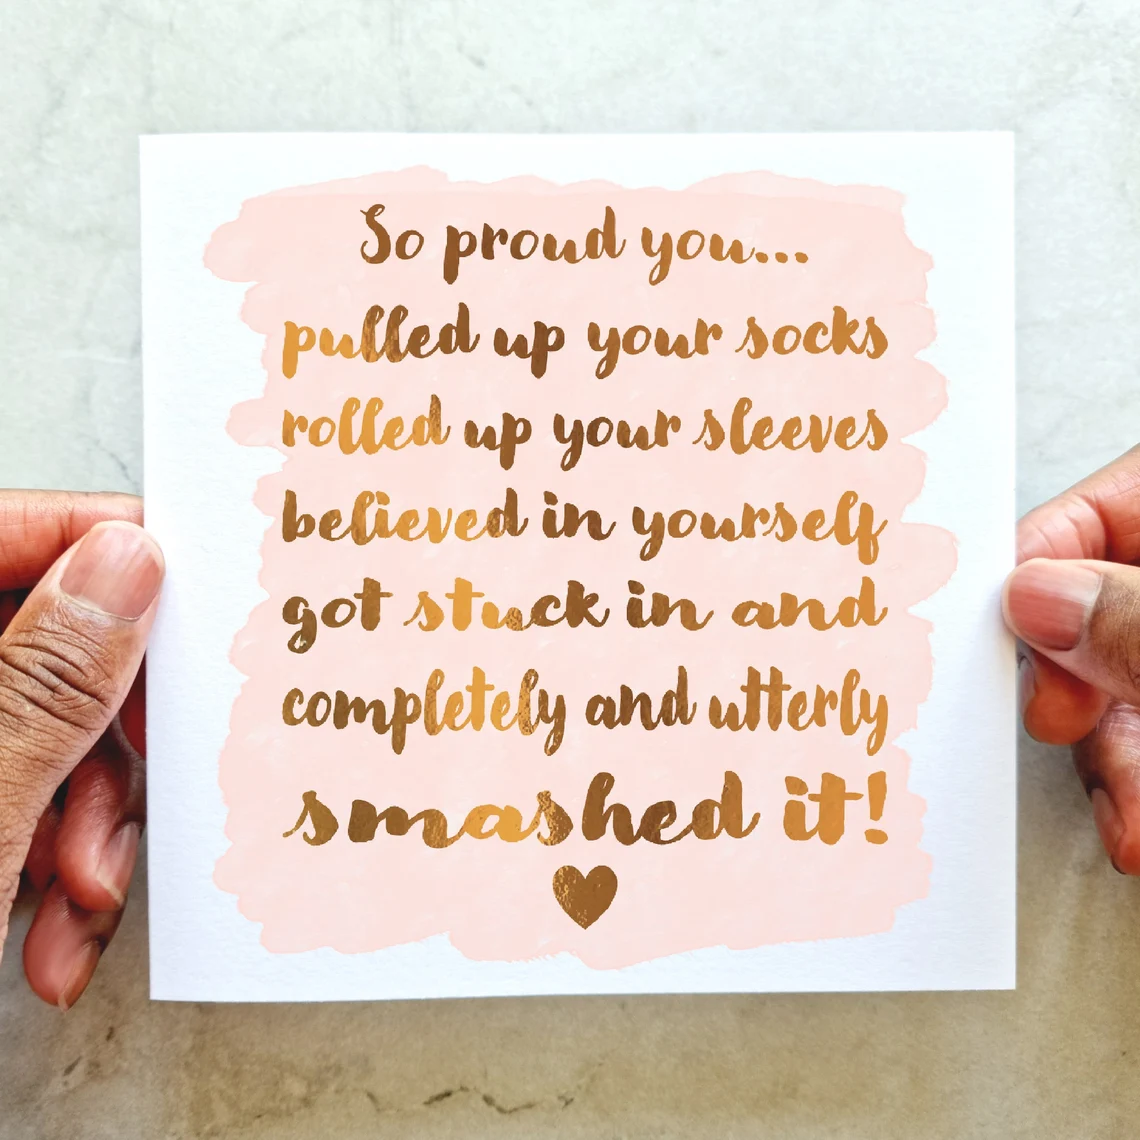 So proud you...
pulled up your socks
rolled up your sleeves
believed in yourself
got stuck in and
completely and utterly
smashed it!